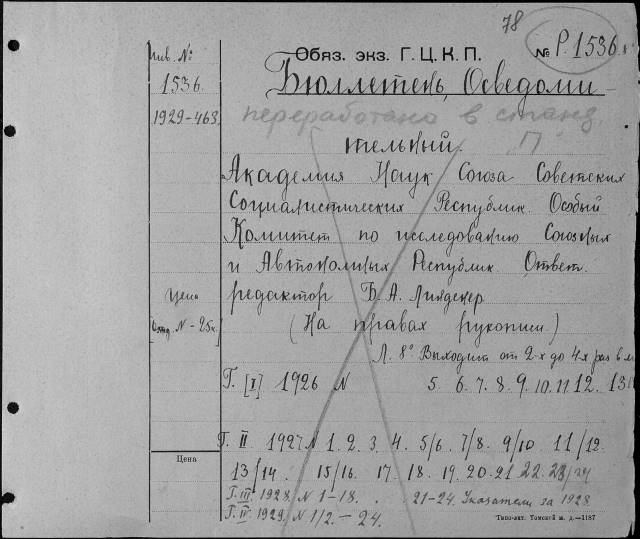 78
Инв. №: Обяз. экз. Г.Ц.К.П. № Р.1536
1536. Бюллетень, Осведоми-
1929-463. переработано в станд.
тельный. П
Академия Наук Союза Советских
Социалистических Республик. Особый
Комитет по исследованию Союзных
и Автономных Республик. Ответ.
Цена редактор Б. А. Линденер
Отд. N - 25к. (На правах рукописи)
Л. 8° Выходит от 2-х до 4х раз в м
Г. [I] 1926 N 5. 6. 7. 8. 9. 10. 11 12. 13
Г. II 1927 N 1. 2. 3. 4. 5/6. 7/8. 9/10 11/12.
Цена 13/14. 15/16. 17. 18. 19. 20. 21. 22. 23/24
Г. III. 1928. N 1-18. 21-24. Указатели за 1928
Г. IV. 1929. N 1/2. - 24. Типо-лит. Томской ж. д.—1187